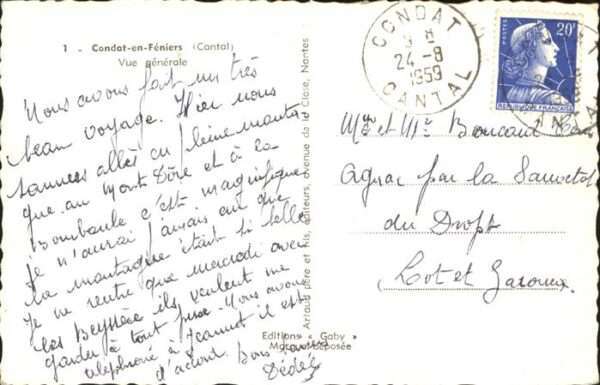 1 - Condat-en-Féniers (Cantal)
Vue générale
Nous avons fait un très
beau voyage. Hier nous
sommes allés en pleine monta
gne au Mont Dore et à la
Bourboule c'est magnifique
je n'aurai jamais cru que
la montagne était si belle
Je ne rentre que mercredi avec
les ils veulent me
garder à tout prix. Nous avons
téléphoné à Jeannot il est
d'accord. Bons
Dédée
Artaud père et fils, éditeurs, avenue de la Close, Nantes
Editions « Gaby »
Marque déposée
CONDAT
24-8
1959
CANTAL
POSTES
20F
REPUBLIQUE FRANÇAISE
Mme et Mr
Agnac par la Sauvetat
du Dropt
Lot et Garonne